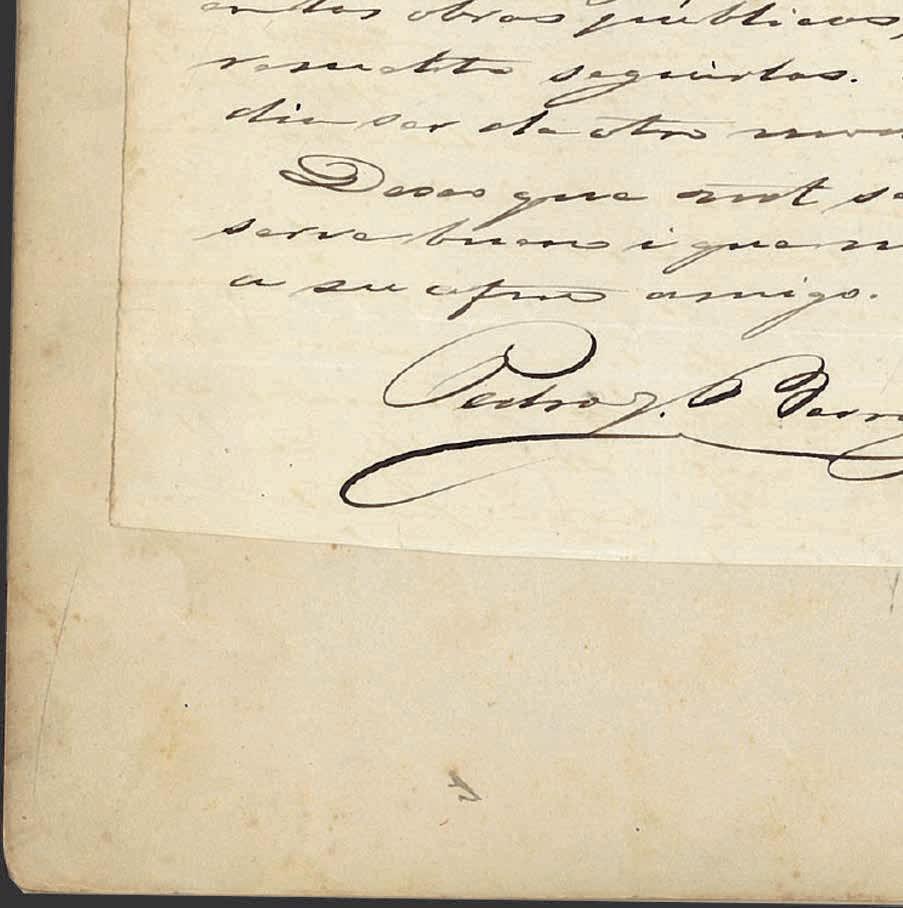 en las obras públicas,
resuelto seguirlas.
dia ser de otro mo
Deseo que
serve bueno i que
a su afmo amigo.
Pedro J.